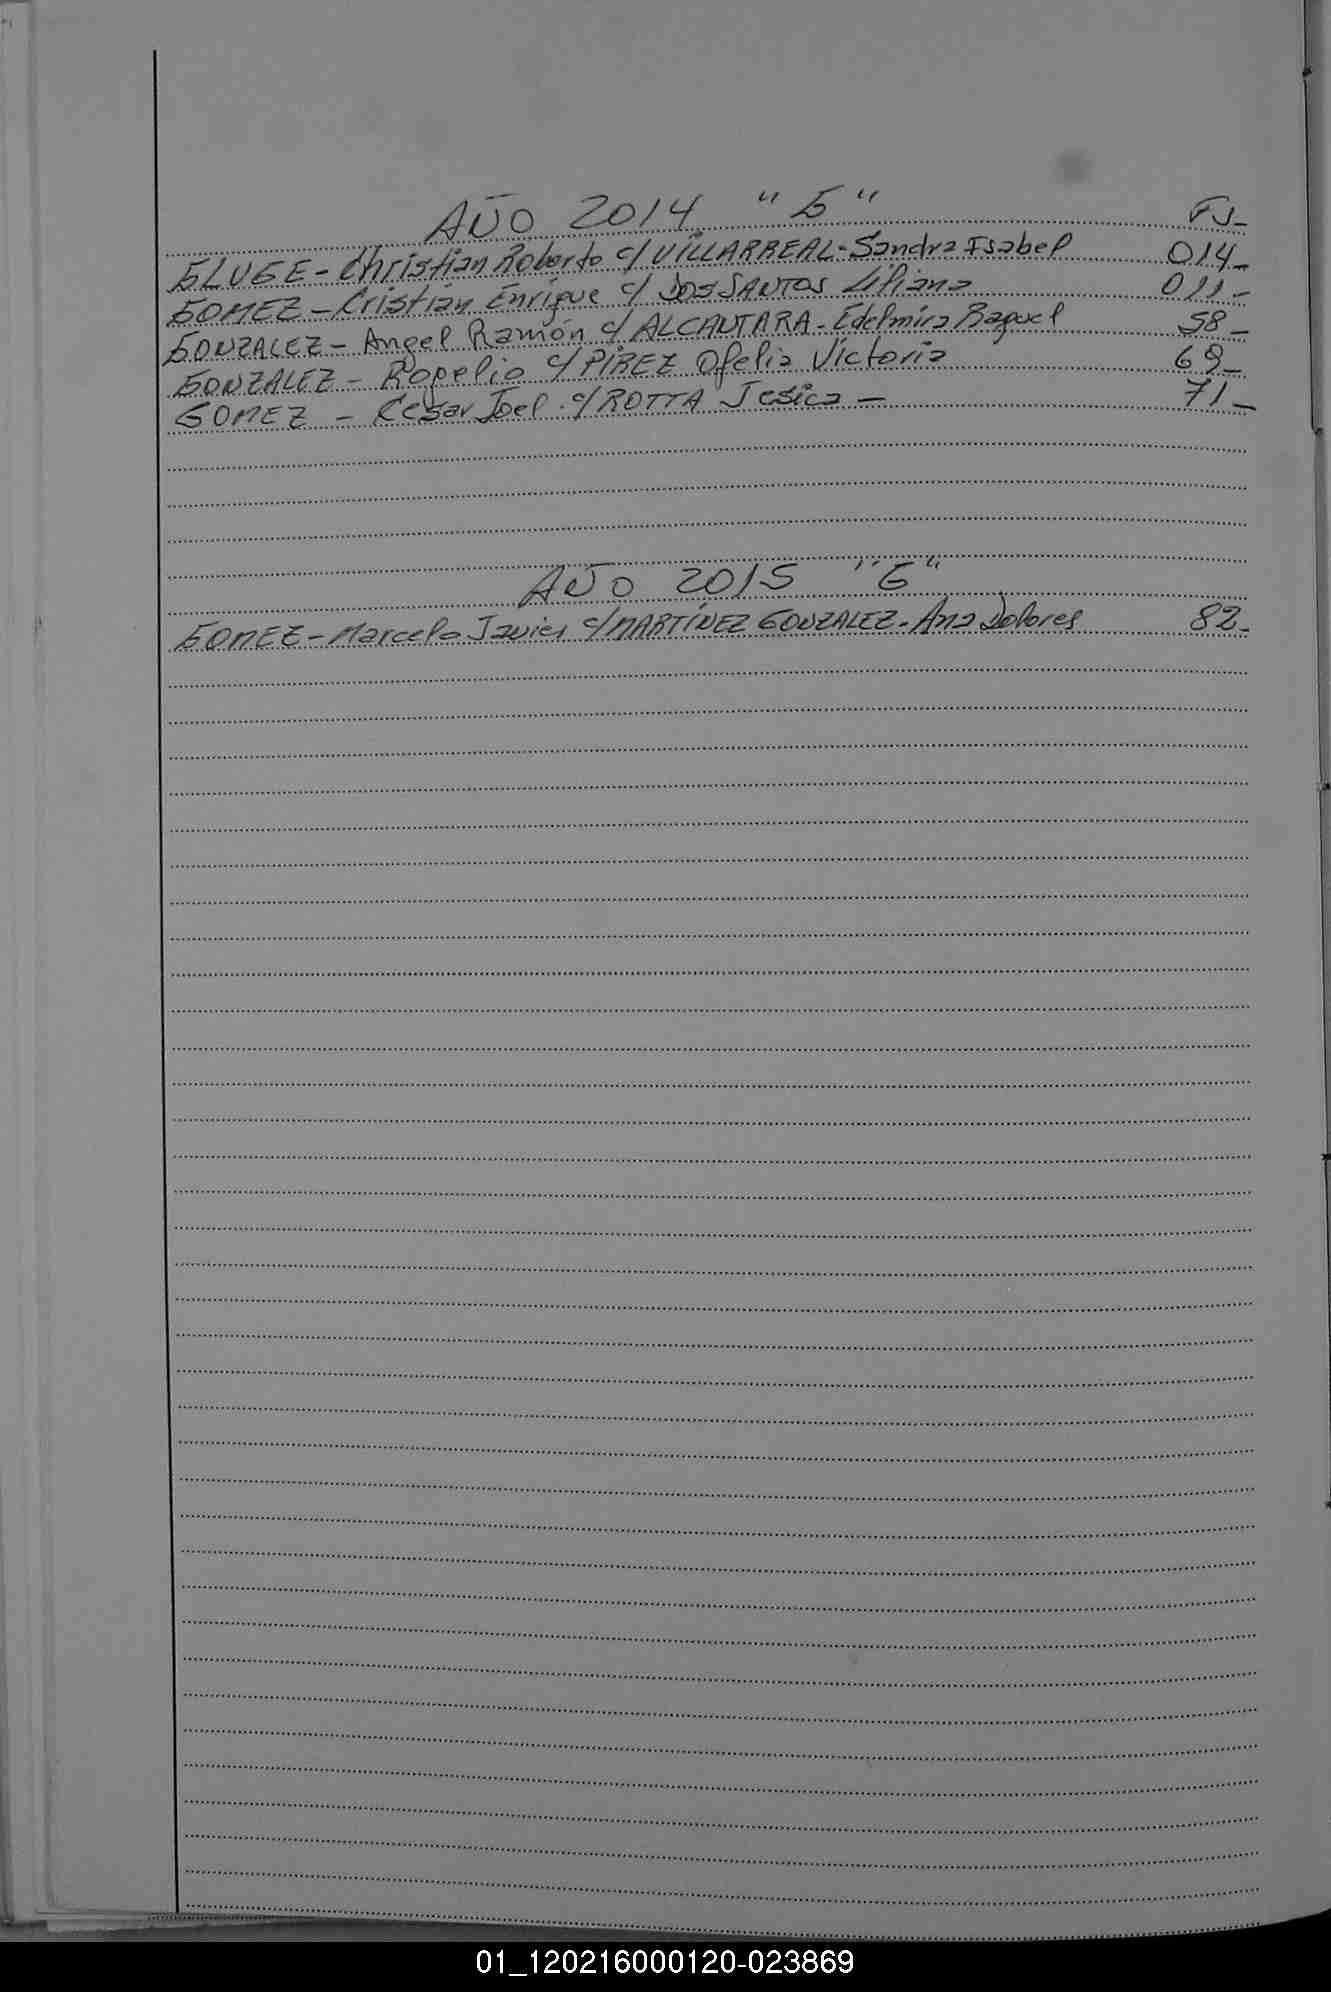 AÑO 2014 "G" FJ-
GLUGE - Christian Roberto c/ VILLARREAL - Sandra Isabel 014-
GOMEZ - Cristián Enrique c/ DOS SANTOS Liliana 011-
GONZALEZ - Angel Ramón c/ ALCANTARA - Edelmira Raquel 58-
GONZALEZ - Rogelio c/ PIREZ Ofelia Victoria 69-
GOMEZ - Cesar Joel c/ ROTTA Jesica - 71-
AÑO 2015 "G"
GOMEZ - Marcelo Javier c/ MARTÍNEZ GONZALEZ - Ana Dolores 82-
01_120216000120-023869